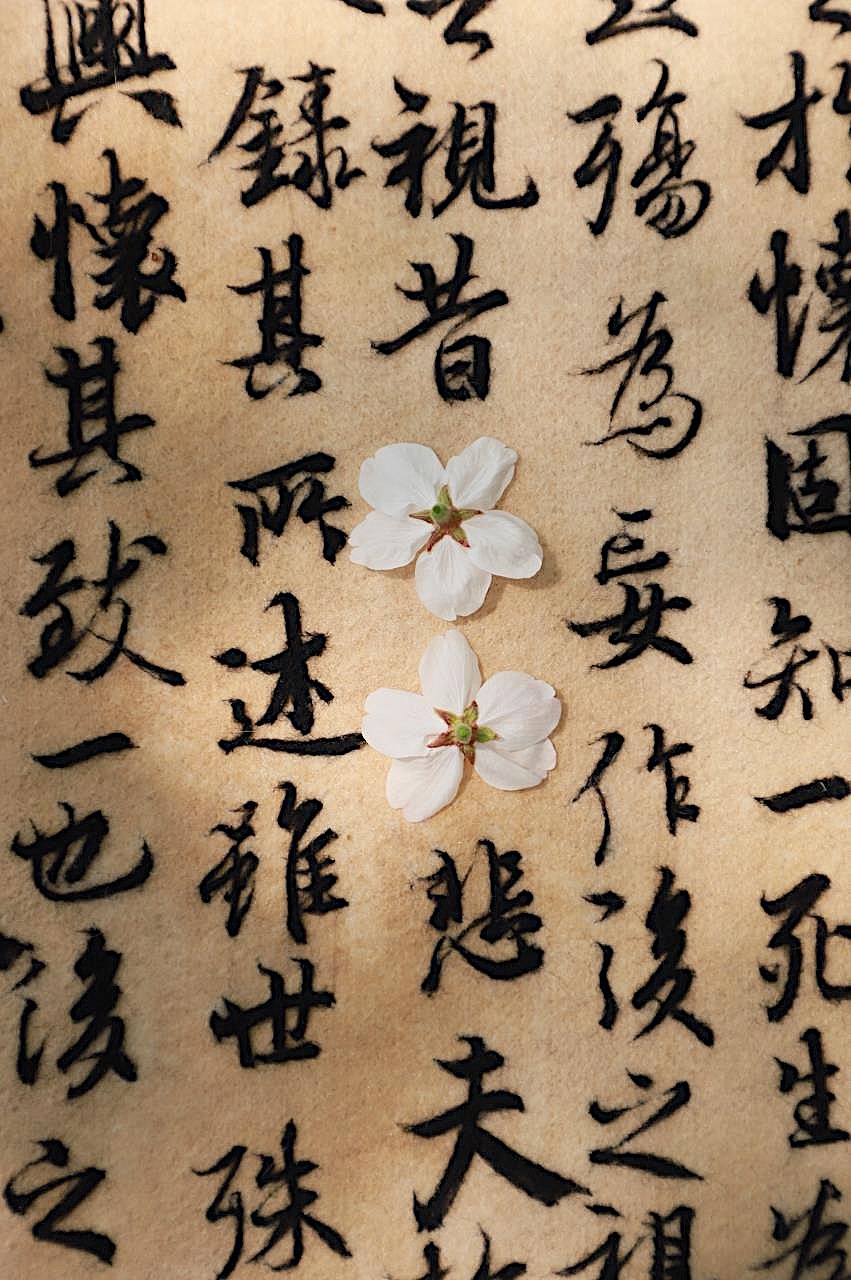 於懷固知一死生為
殤為妄作後之視
視昔悲夫
錄其所述雖世殊
興懷其致一也後之